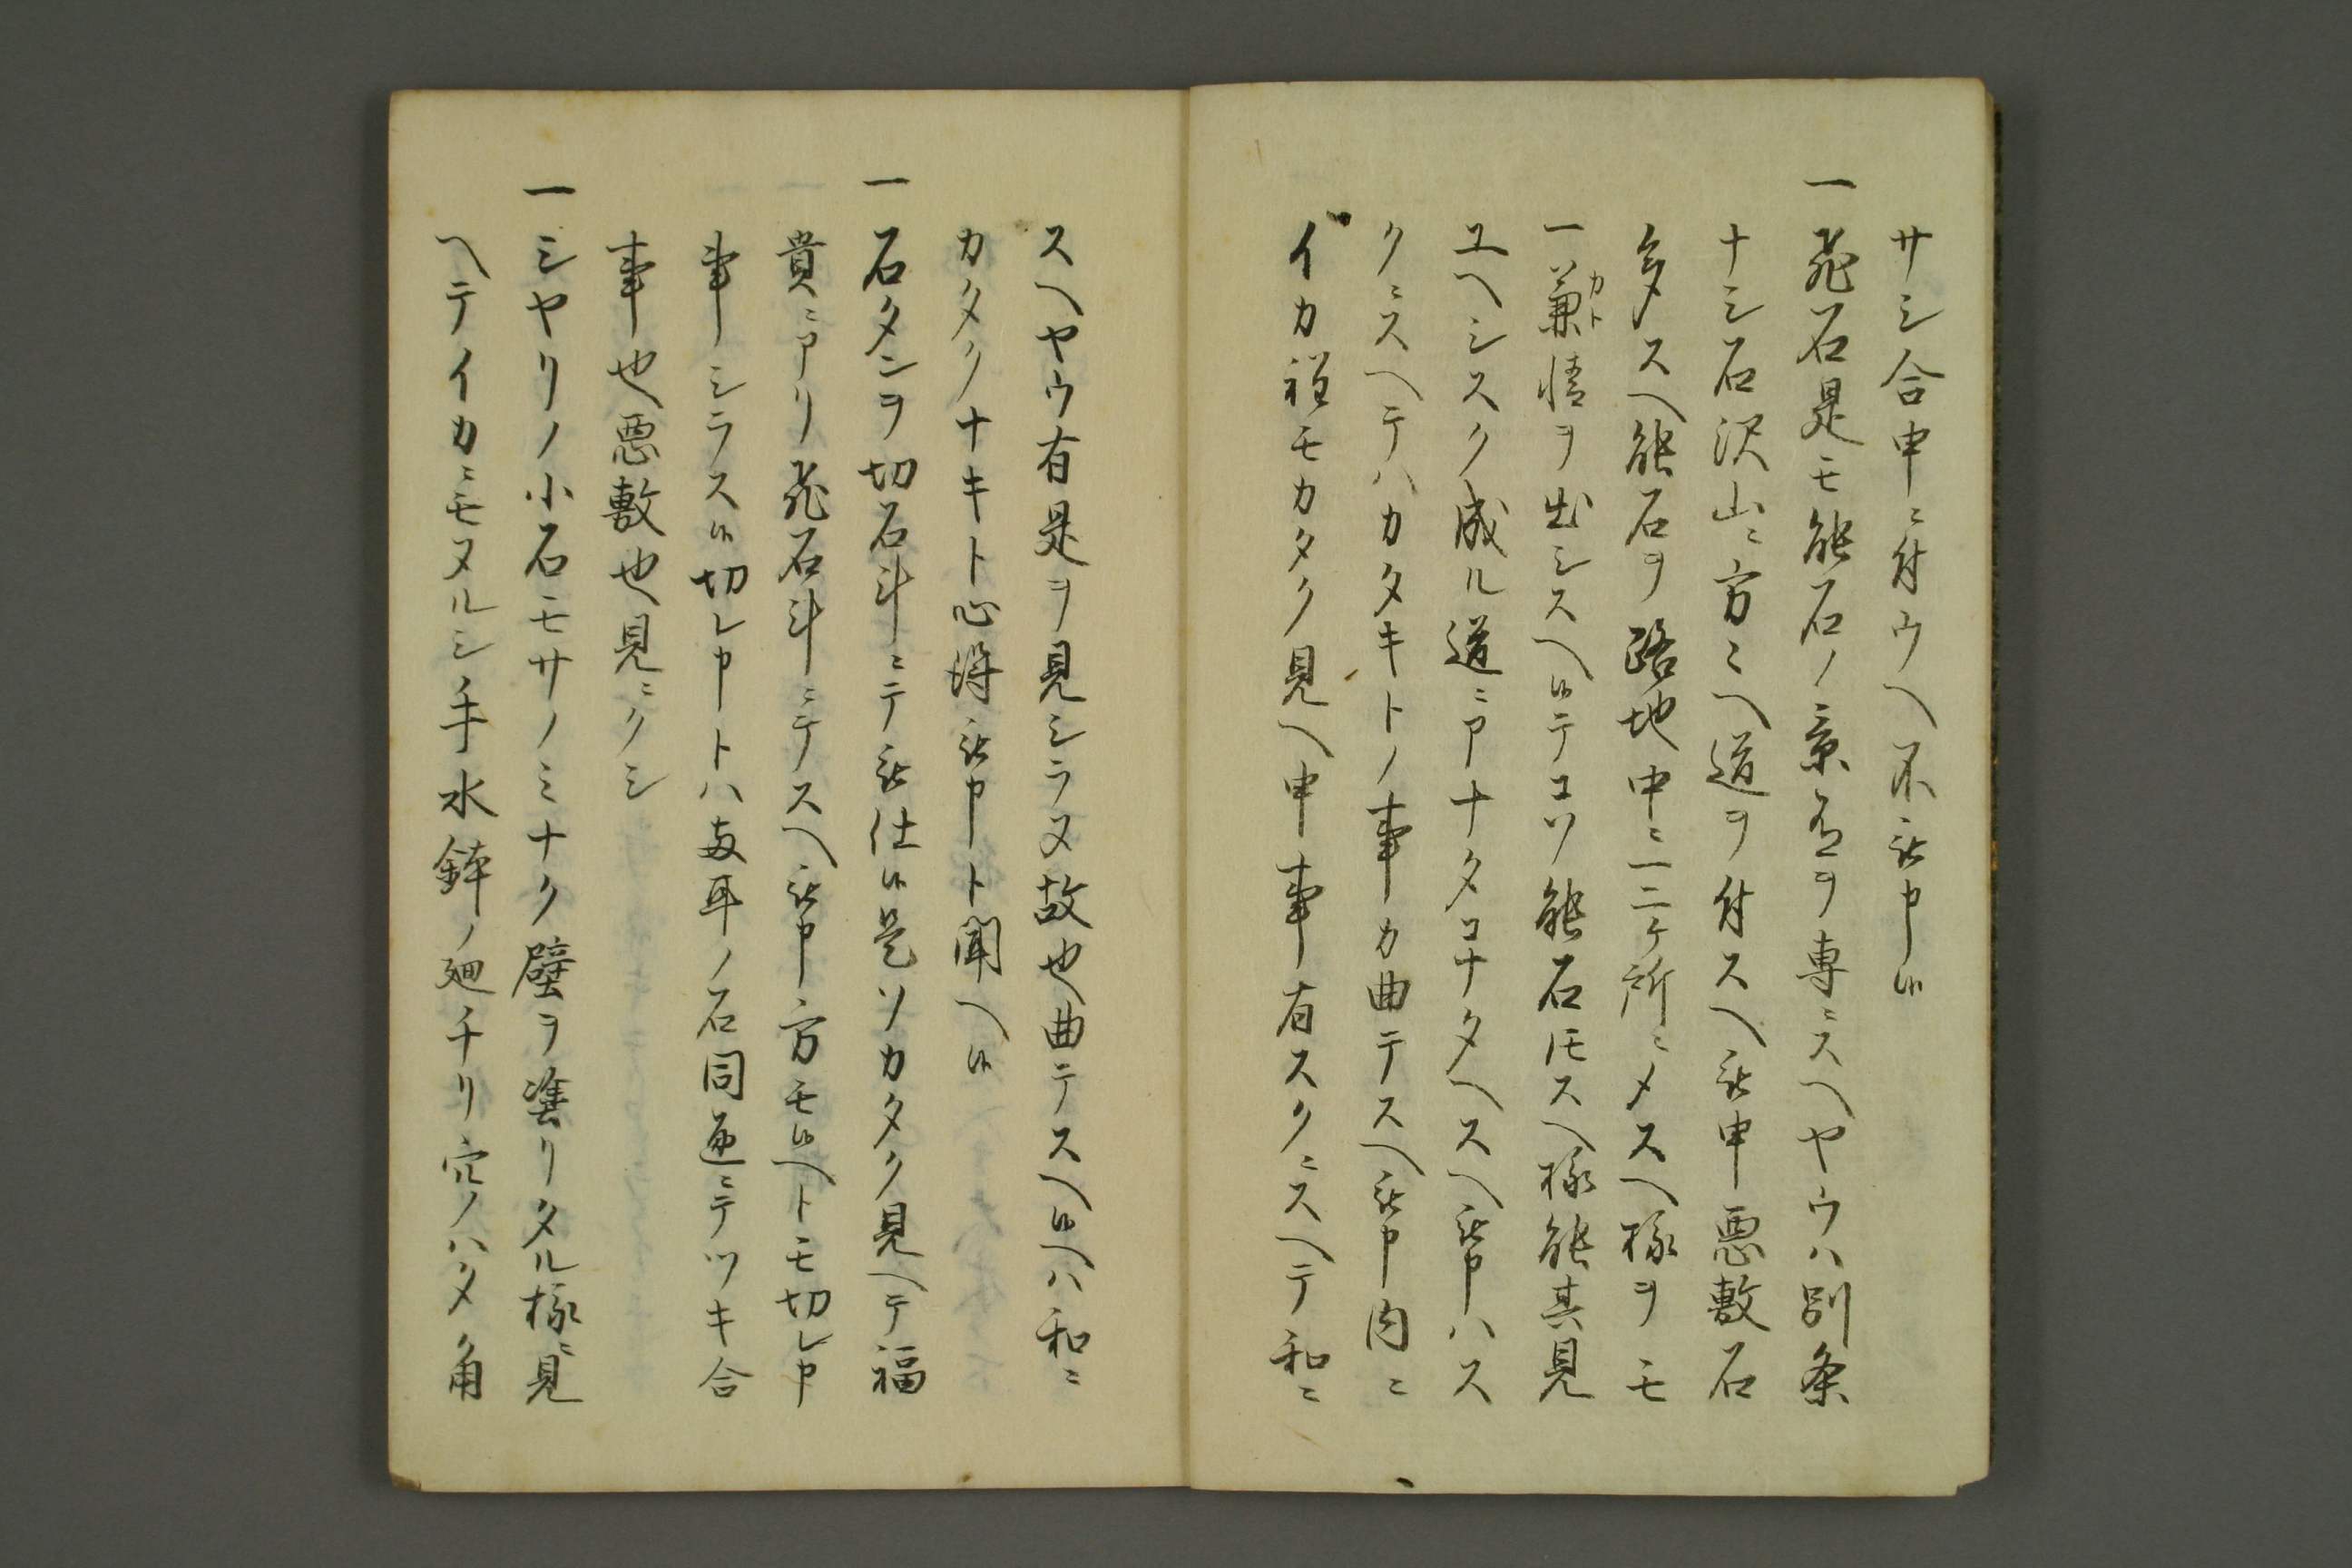 サシ合申ニ付ウヘ不被申候
一飛石是モ能石ノ景気ヲ専ニスヘヤウハ別条
ナシ石沢山ニ方ミヘ道ヲ付スヘ被申悪敷石
多スヘ能石ヲ路地中ニ一二ケ所ニメスヘ様ヲモ
一ツ兼情ヲ出シスヘ候テコソ能石モスヘ様能其見
カト
ユヘシスク成ル道ニアナタコナタヘスヘ被申ハス
クニスヘテハカタキトノ事カ曲テスヘ被申内ニ
イカ程モカタク見ヘ申事有スクニスヘテ和ニ
スヘヤウ有是ヲ見シラヌ故也曲テスヘ候ヘハ和ニ
カタクナキト心得被申ト聞ヘ候
一石タンヲ切石斗ニテ被仕候是ソカタク見ヘテ福
貴ニアリ飛石斗ニテスヘ被申方モ候ヘトモ切レ申
事シラス候切レ申トハ両耳ノ石同通ニテツキ合
事也悪敷也見ニクシ
一シヤリノ小石モサノミナク壁ヲ塗リタル様ニ見
ヘテイカニモヌルシ手水鉢ノ廻チリ穴ノハタ角